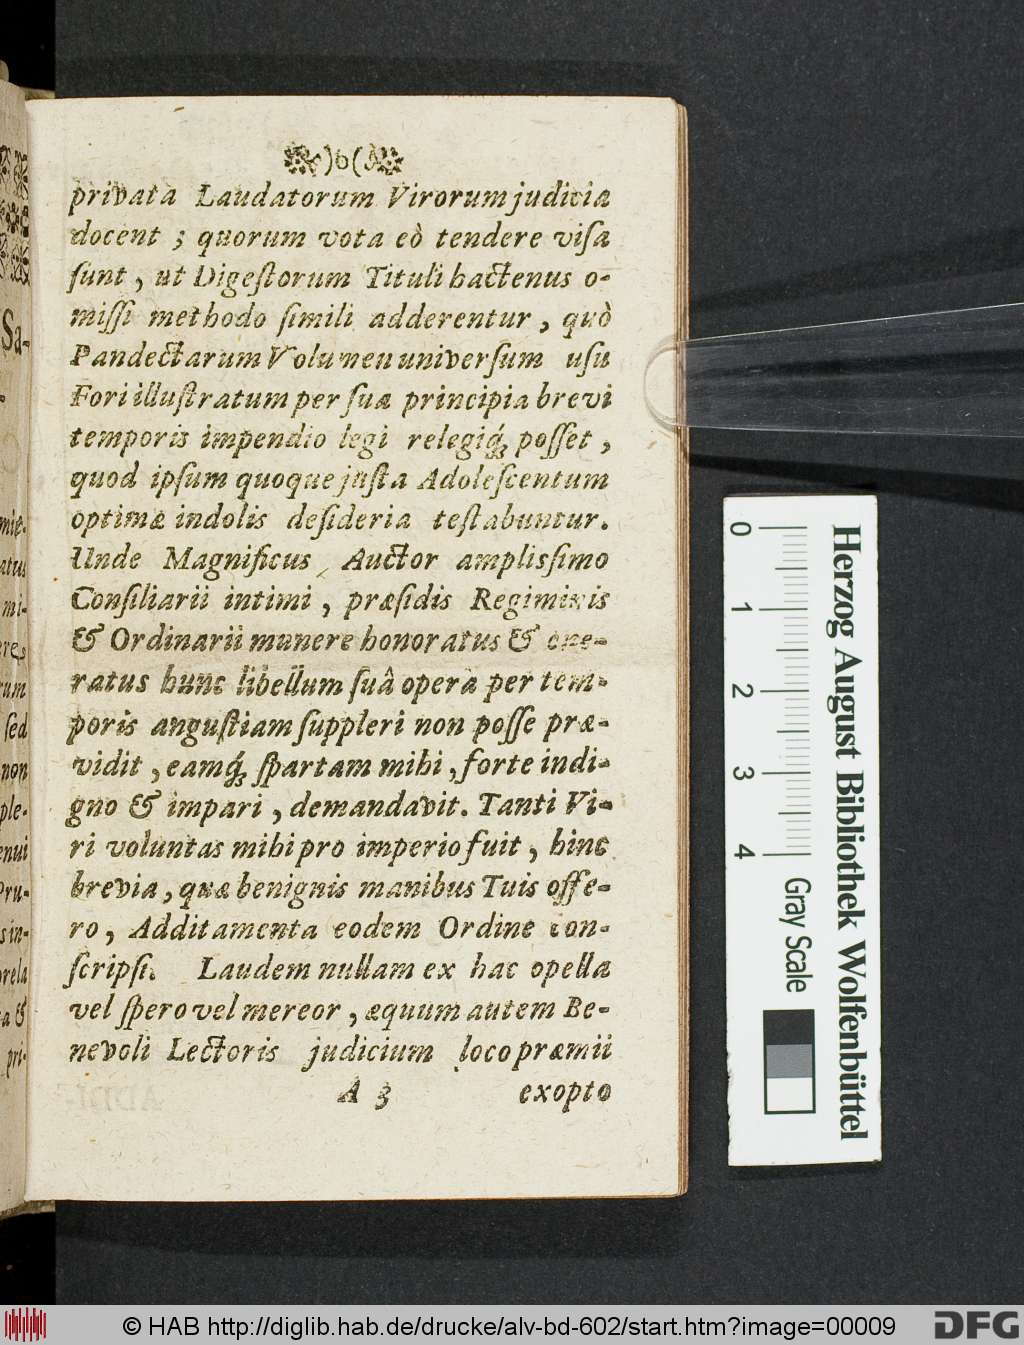 )o(
privata Laudatorum Virorum judicia
docent ; quorum vota eò tendere viſa
ſunt , ut Digeſtorum Tituli hactenus o-
miſſi methodo ſimili adderentur , quò
Pandectarum Volumen univerſum uſu
Fori illuſtratum per ſuæ principia brevi
temporis impendio legi relegiq́; poſſet ,
quod ipſum quoque juſta Adoleſcentum
optimæ indolis deſideria teſtabuntur.
Unde Magnificus Auctor amplisſimo
Conſiliarii intimi , præſidis Regiminis
& Ordinarii munere honoratus & one-
ratus hunc libellum ſuâ opera per tem-
poris anguſtiam ſuppleri non poſſe præ-
vidit , eamq́; ſpartam mihi , forte indi-
gno & impari , demandavit. Tanti Vi-
ri voluntas mihi pro imperio fuit , hinc
brevia , quæ benignis manibus Tuis offe-
ro, Additamenta eodem Ordine con-
ſcripſi. Laudem nullam ex hac opella
vel ſpero vel mereor , æquum autem Be-
nevoli Lectoris judicium loco præmii
A 3 exopto
Sa-
mie-
atus
mi-
eres
rum
ſed
non
ple-
enui
Pru-
s in-
orela
a &
pri-
0 1 2 3 4
Gray Scale
Herzog August Bibliothek Wolfenbüttel
© HAB http://diglib.hab.de/drucke/alv-bd-602/start.htm?image=00009
DFG